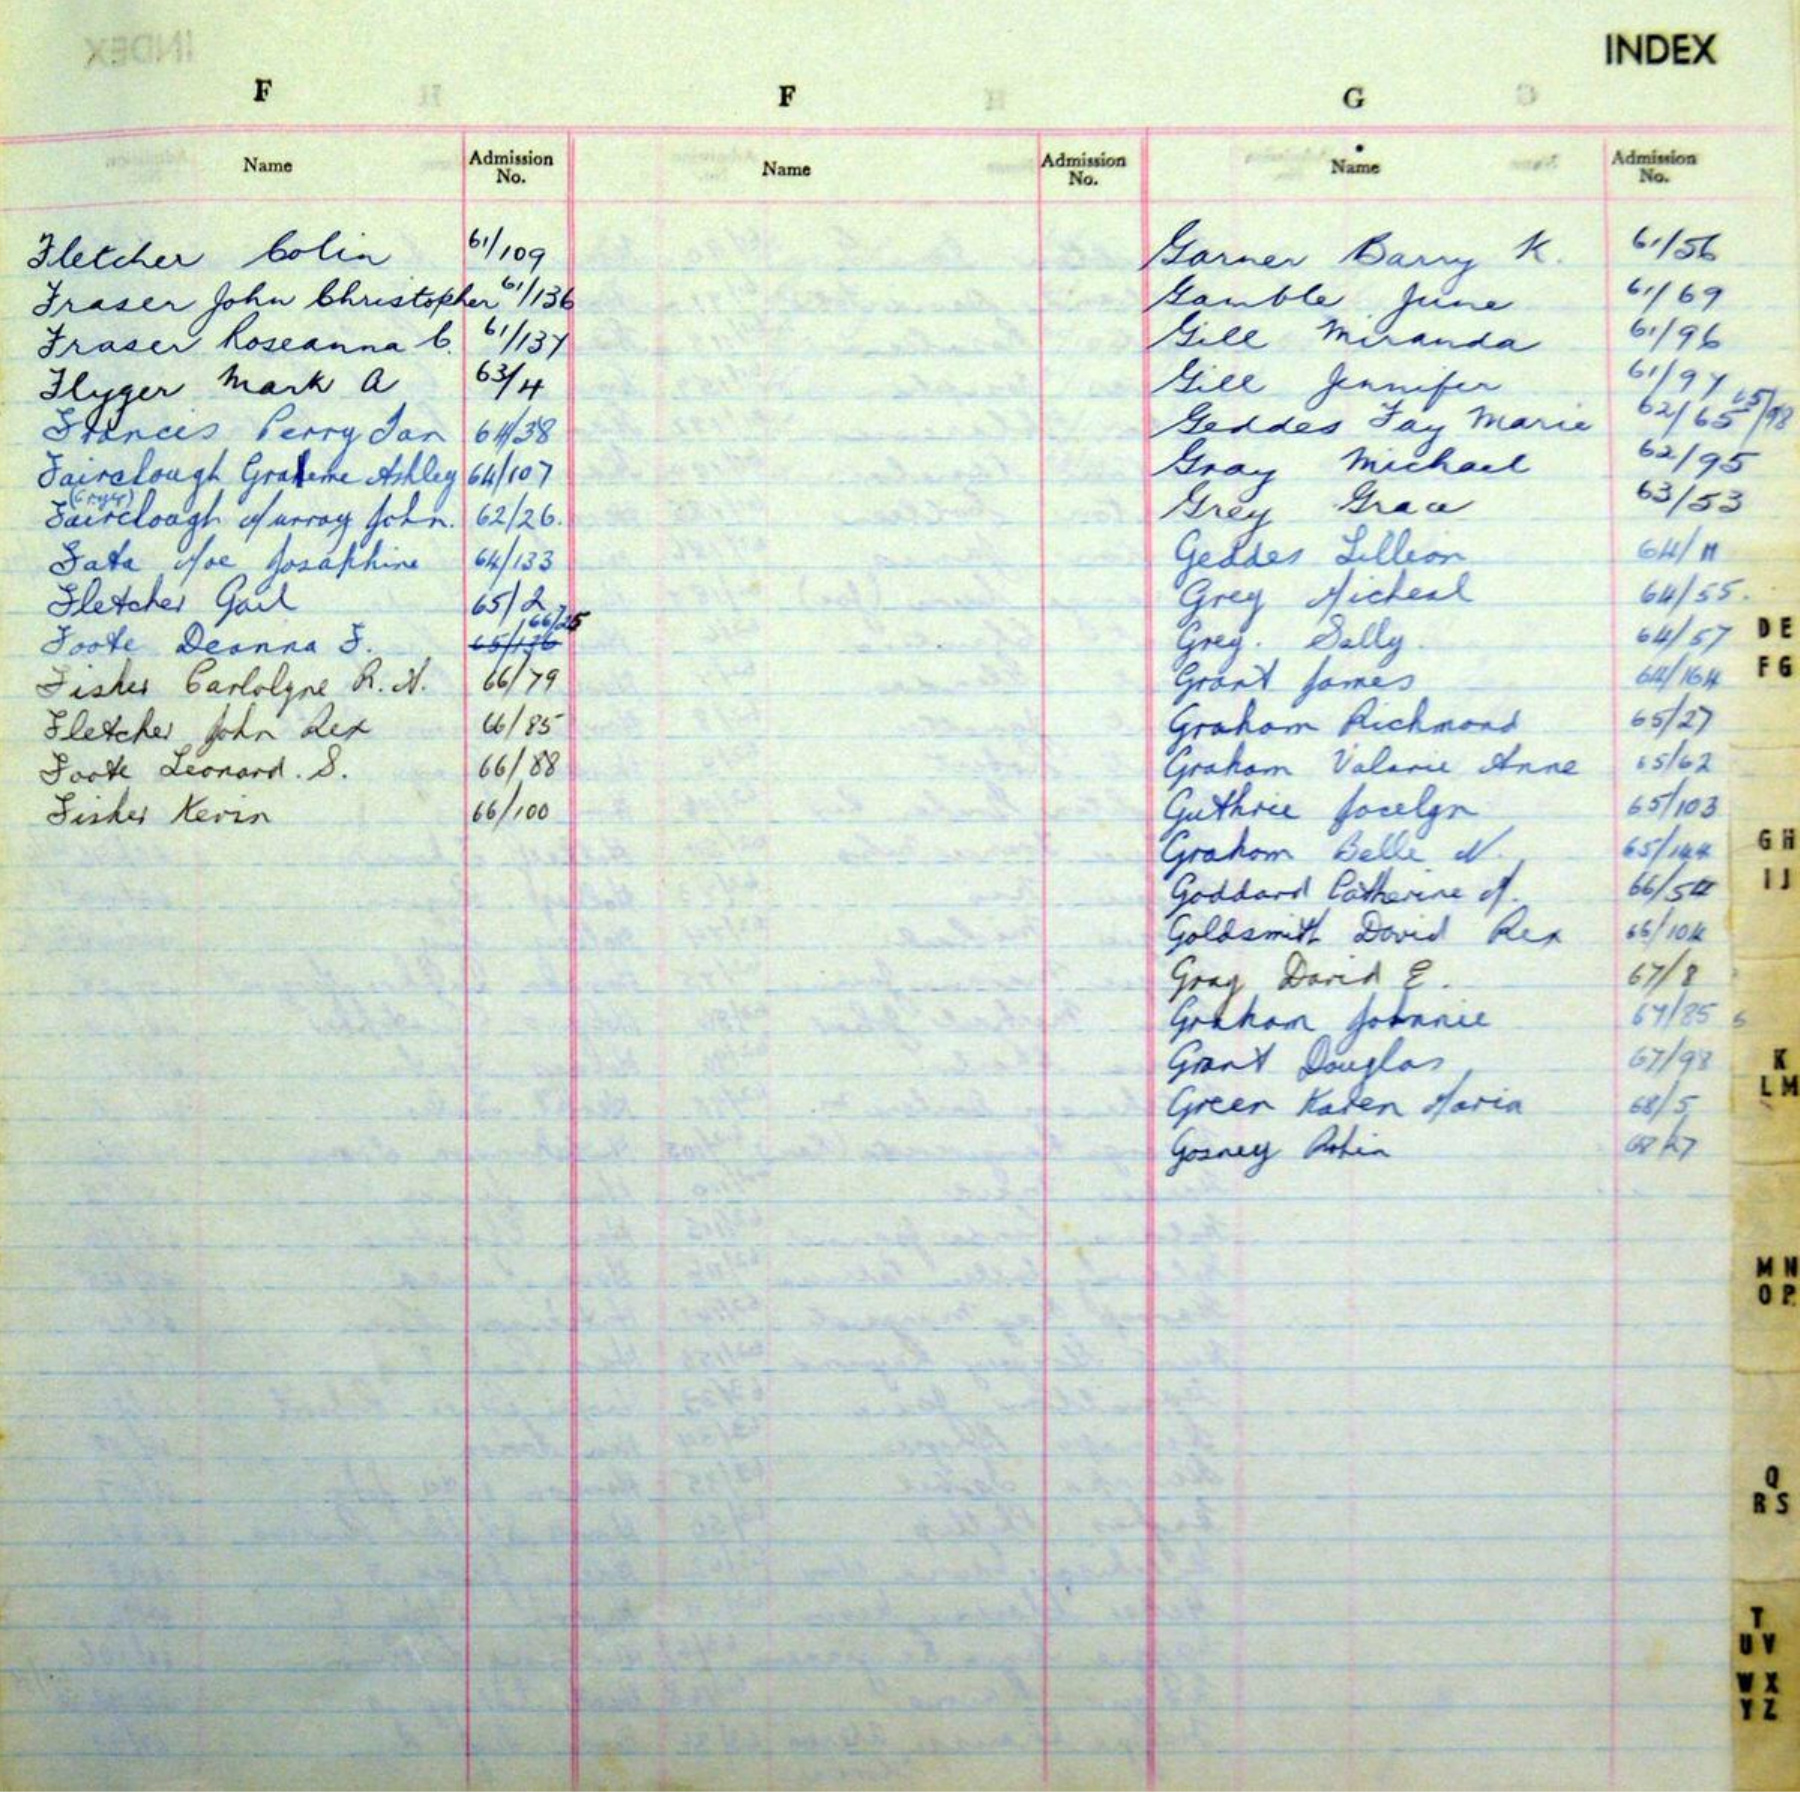 INDEX
F
Name Admission No.
Fletcher Colin 61/109
Fraser John Christopher 61/136
Fraser Roseanna C. 61/137
Flyger Mark A 63/4
Francis Perry Ian 64/38
Fairclough Graheme Ashley 64/107
Fairclough Murray John. 62/26.
Fata Moe Josaphine 64/133
Fletcher Gail 65/2
Foote Deanna F. 65/136 66/25
Fisher Carlolyne R. M. 66/79
Fletcher John Rex 66/85
Foote Leonard. S. 66/88
Fisher Kevin 66/100
F
Name Admission No.
G
Name Admission No.
Garner Barry K. 61/56
Gamble June 61/69
Gill Miranda 61/96
Gill Jennifer 61/97
Geddes Fay Marie 62/65 65/98
Gray Michael 62/95
Grey Grace 63/53
Geddes Lillian 64/11
Grey Micheal 64/55.
Grey. Sally. 64/57
Grant James 64/164
Graham Richmond 65/27
Graham Valarie Anne 65/62
Guthrie Jocelyn 65/103
Graham Belle N. 65/144
Goddard Catherine M. 66/54
Goldsmith David Rex 66/104
Gray David E. 67/8
Graham Joannie 67/85
Grant Douglas 67/98
Green Karen Maria 68/5
Gosney Robin
D E
F G
G H
I J
K
L M
M N
O P
Q
R S
T
U V
W X
Y Z